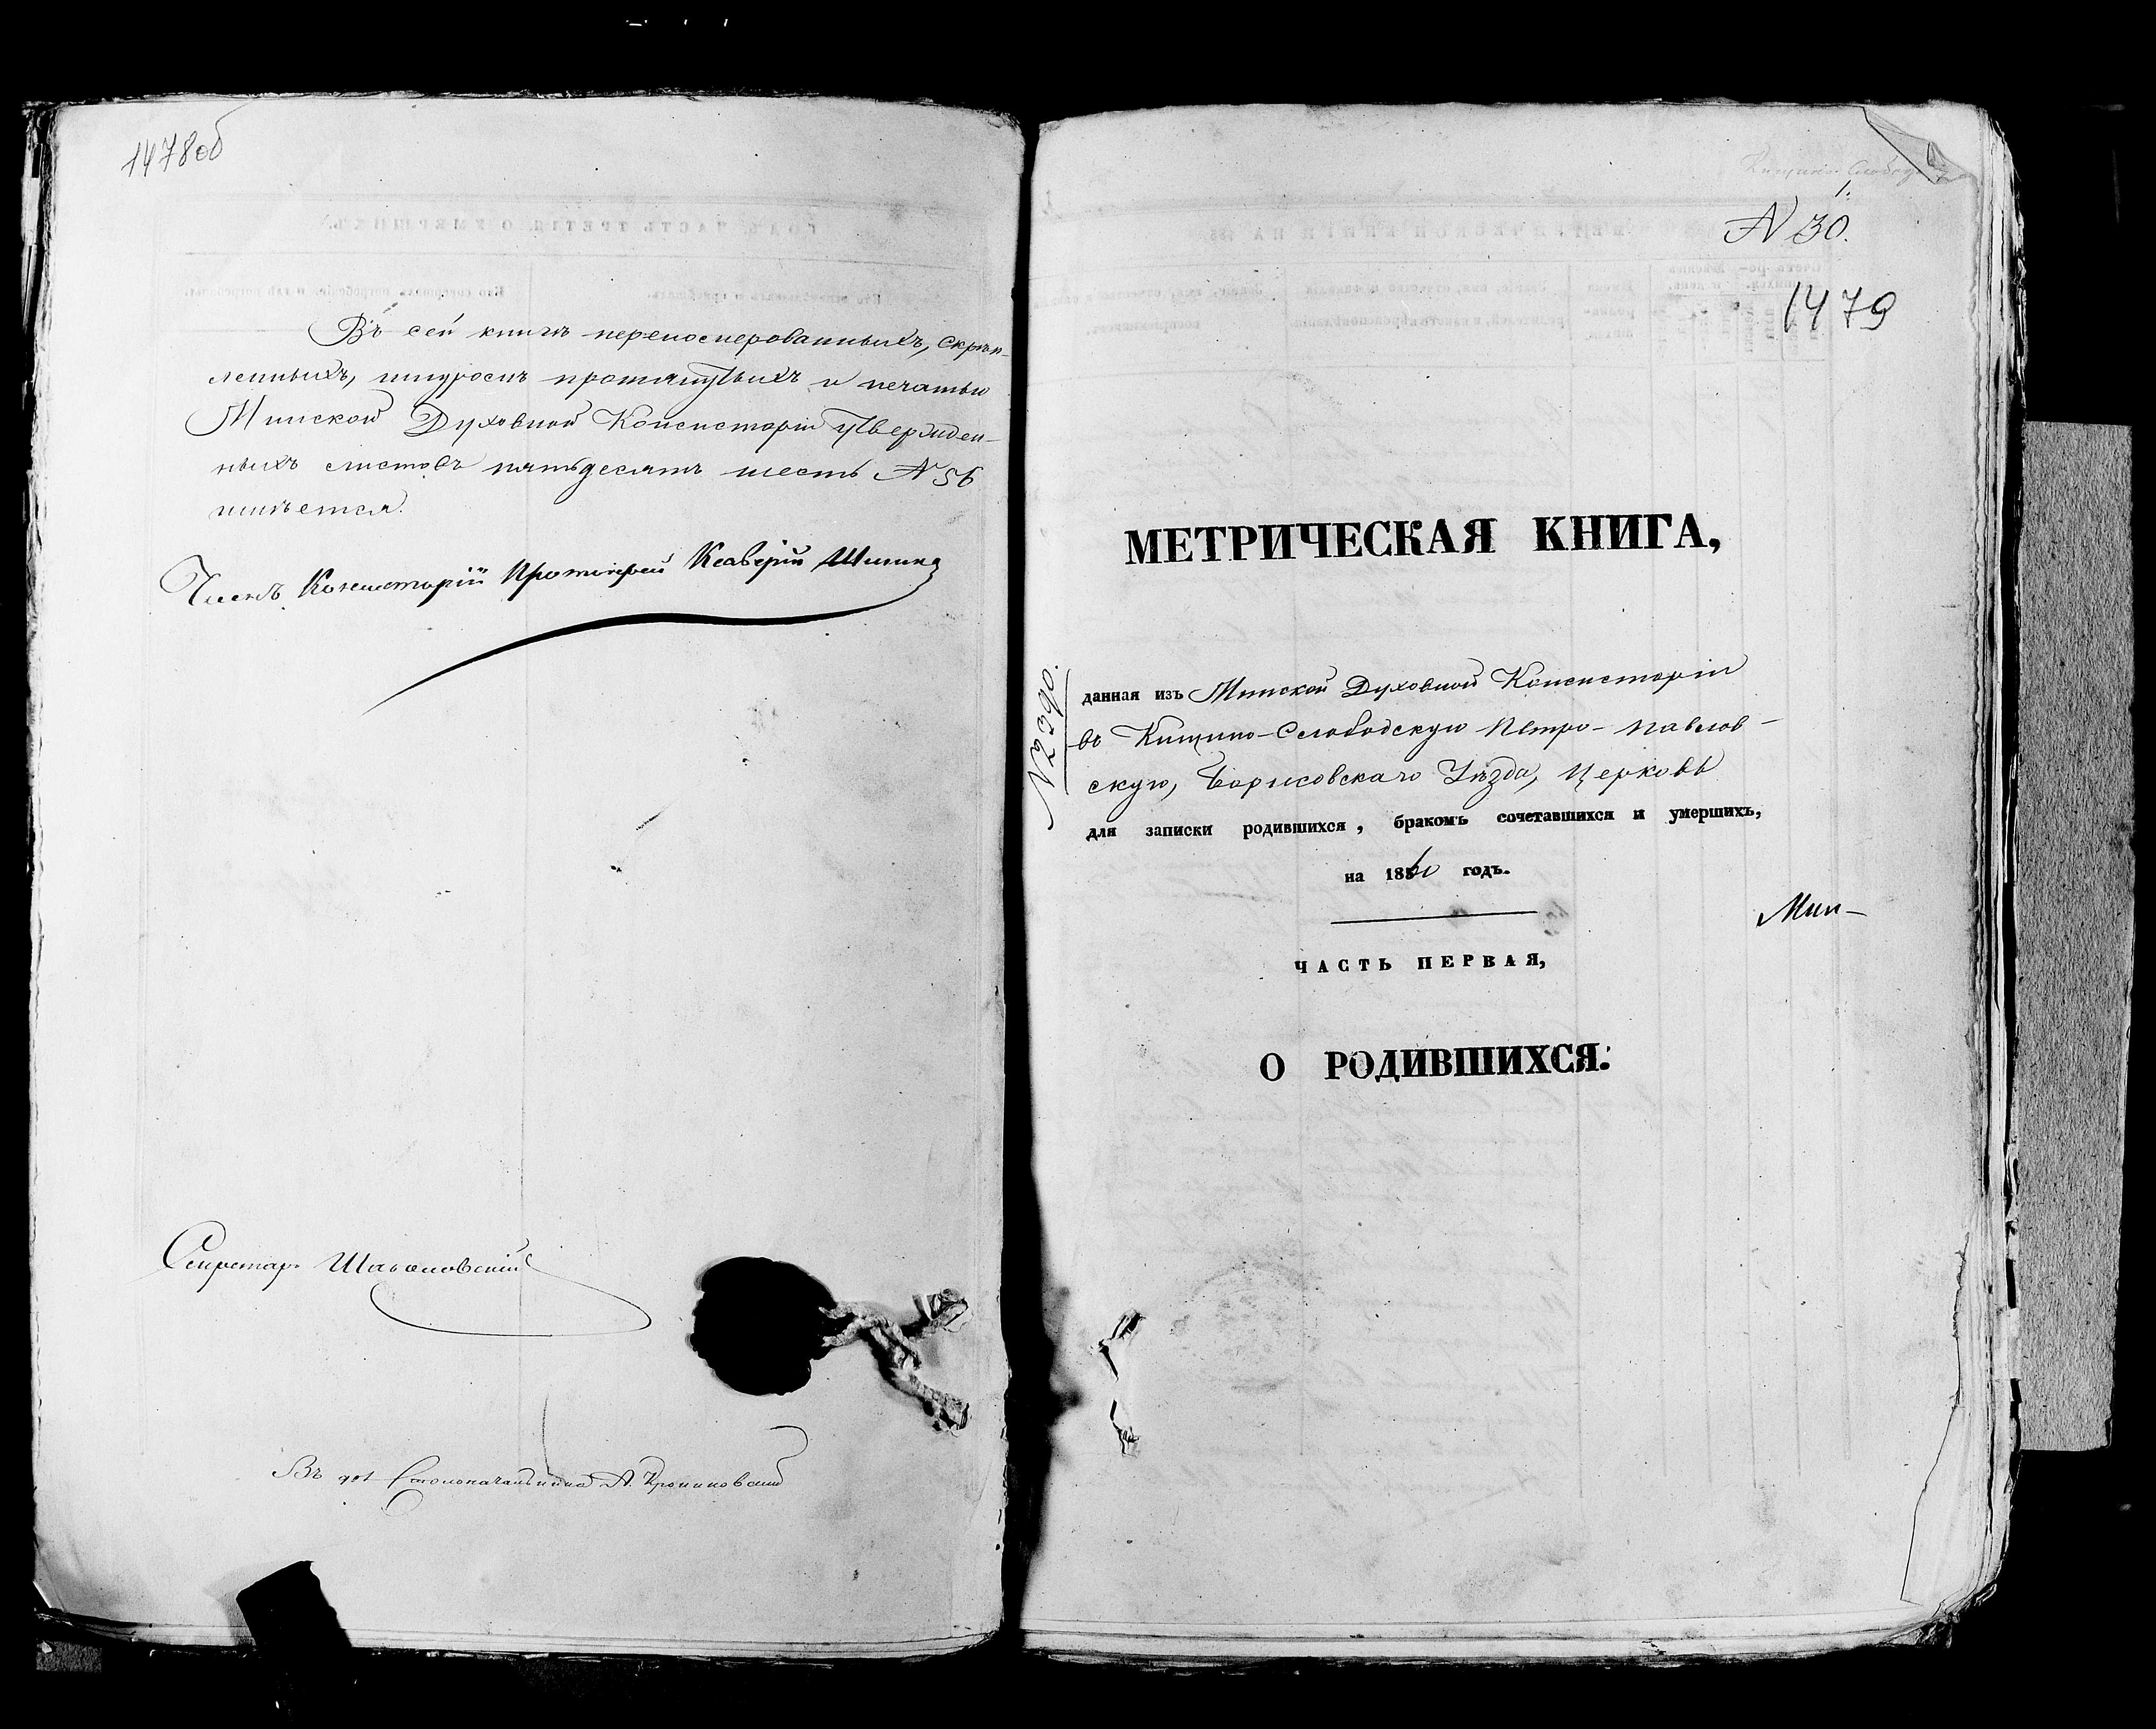 1478об
Въ сей книгѣ перенумерованныхъ, скрѣп-
ленныхъ, шнуромъ протянутыхъ и печатью
Минской Духовной Консисторіи утвержден-
ныхъ листовъ пятьдесятъ шесть № 56
имѣется.
Членъ Консисторіи Протоіерей Ксаверій
Секретарь
Столоначальника А.
Кищино Слобод
1.
№ 30.
1479
МЕТРИЧЕСКАЯ КНИГА,
№ 2390.
данная изъ Минской Духовной Консисторіи
въ Кищино-Слободскую Петро-Павлов-
скую, Борисовскаго Уѣзда, Церковь
для записки родившихся, бракомъ сочетавшихся и умершихъ,
на 1860 годъ.
Мин-
ЧАСТЬ ПЕРВАЯ,
О РОДИВШИХСЯ.